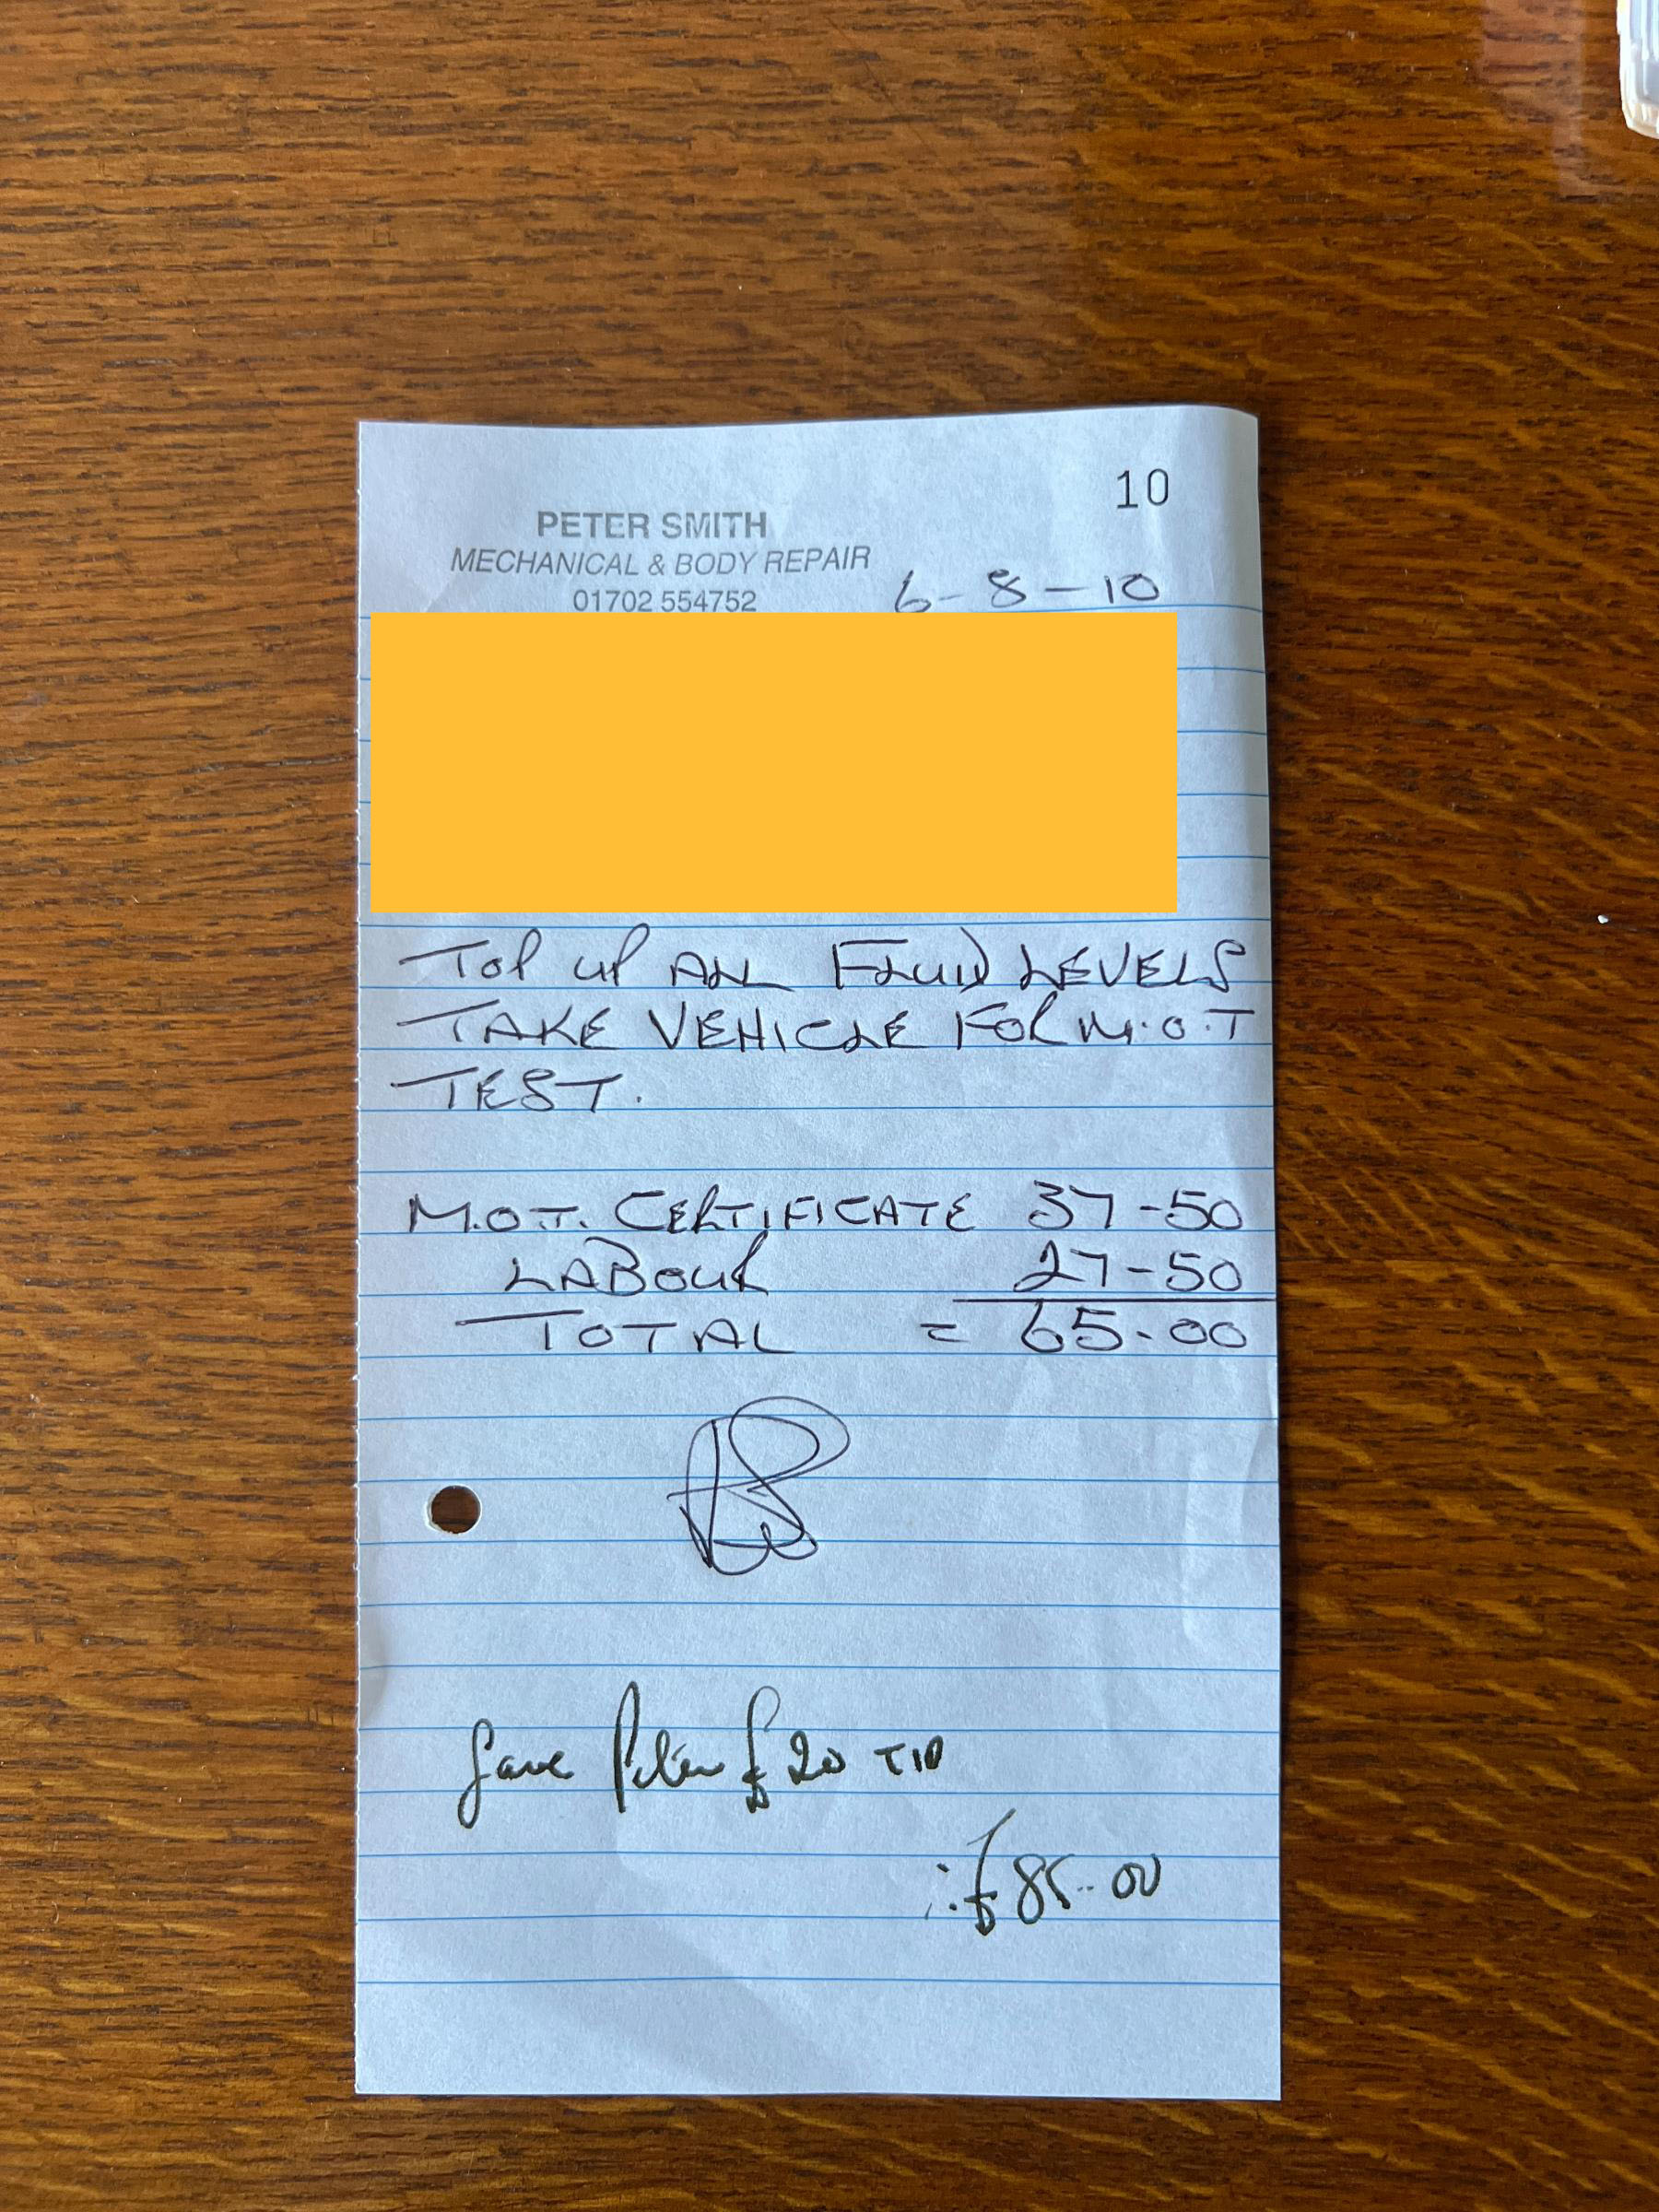 10
PETER SMITH
MECHANICAL & BODY REPAIR
01702 554752
6-8-10
TOP UP ALL FLUID LEVELS
TAKE VEHICLE FOR M.O.T
TEST.
M.O.T. CERTIFICATE 37-50
LABOUR 27-50
TOTAL = 65.00
Gave Peter £20 TIP
∴ £85.00